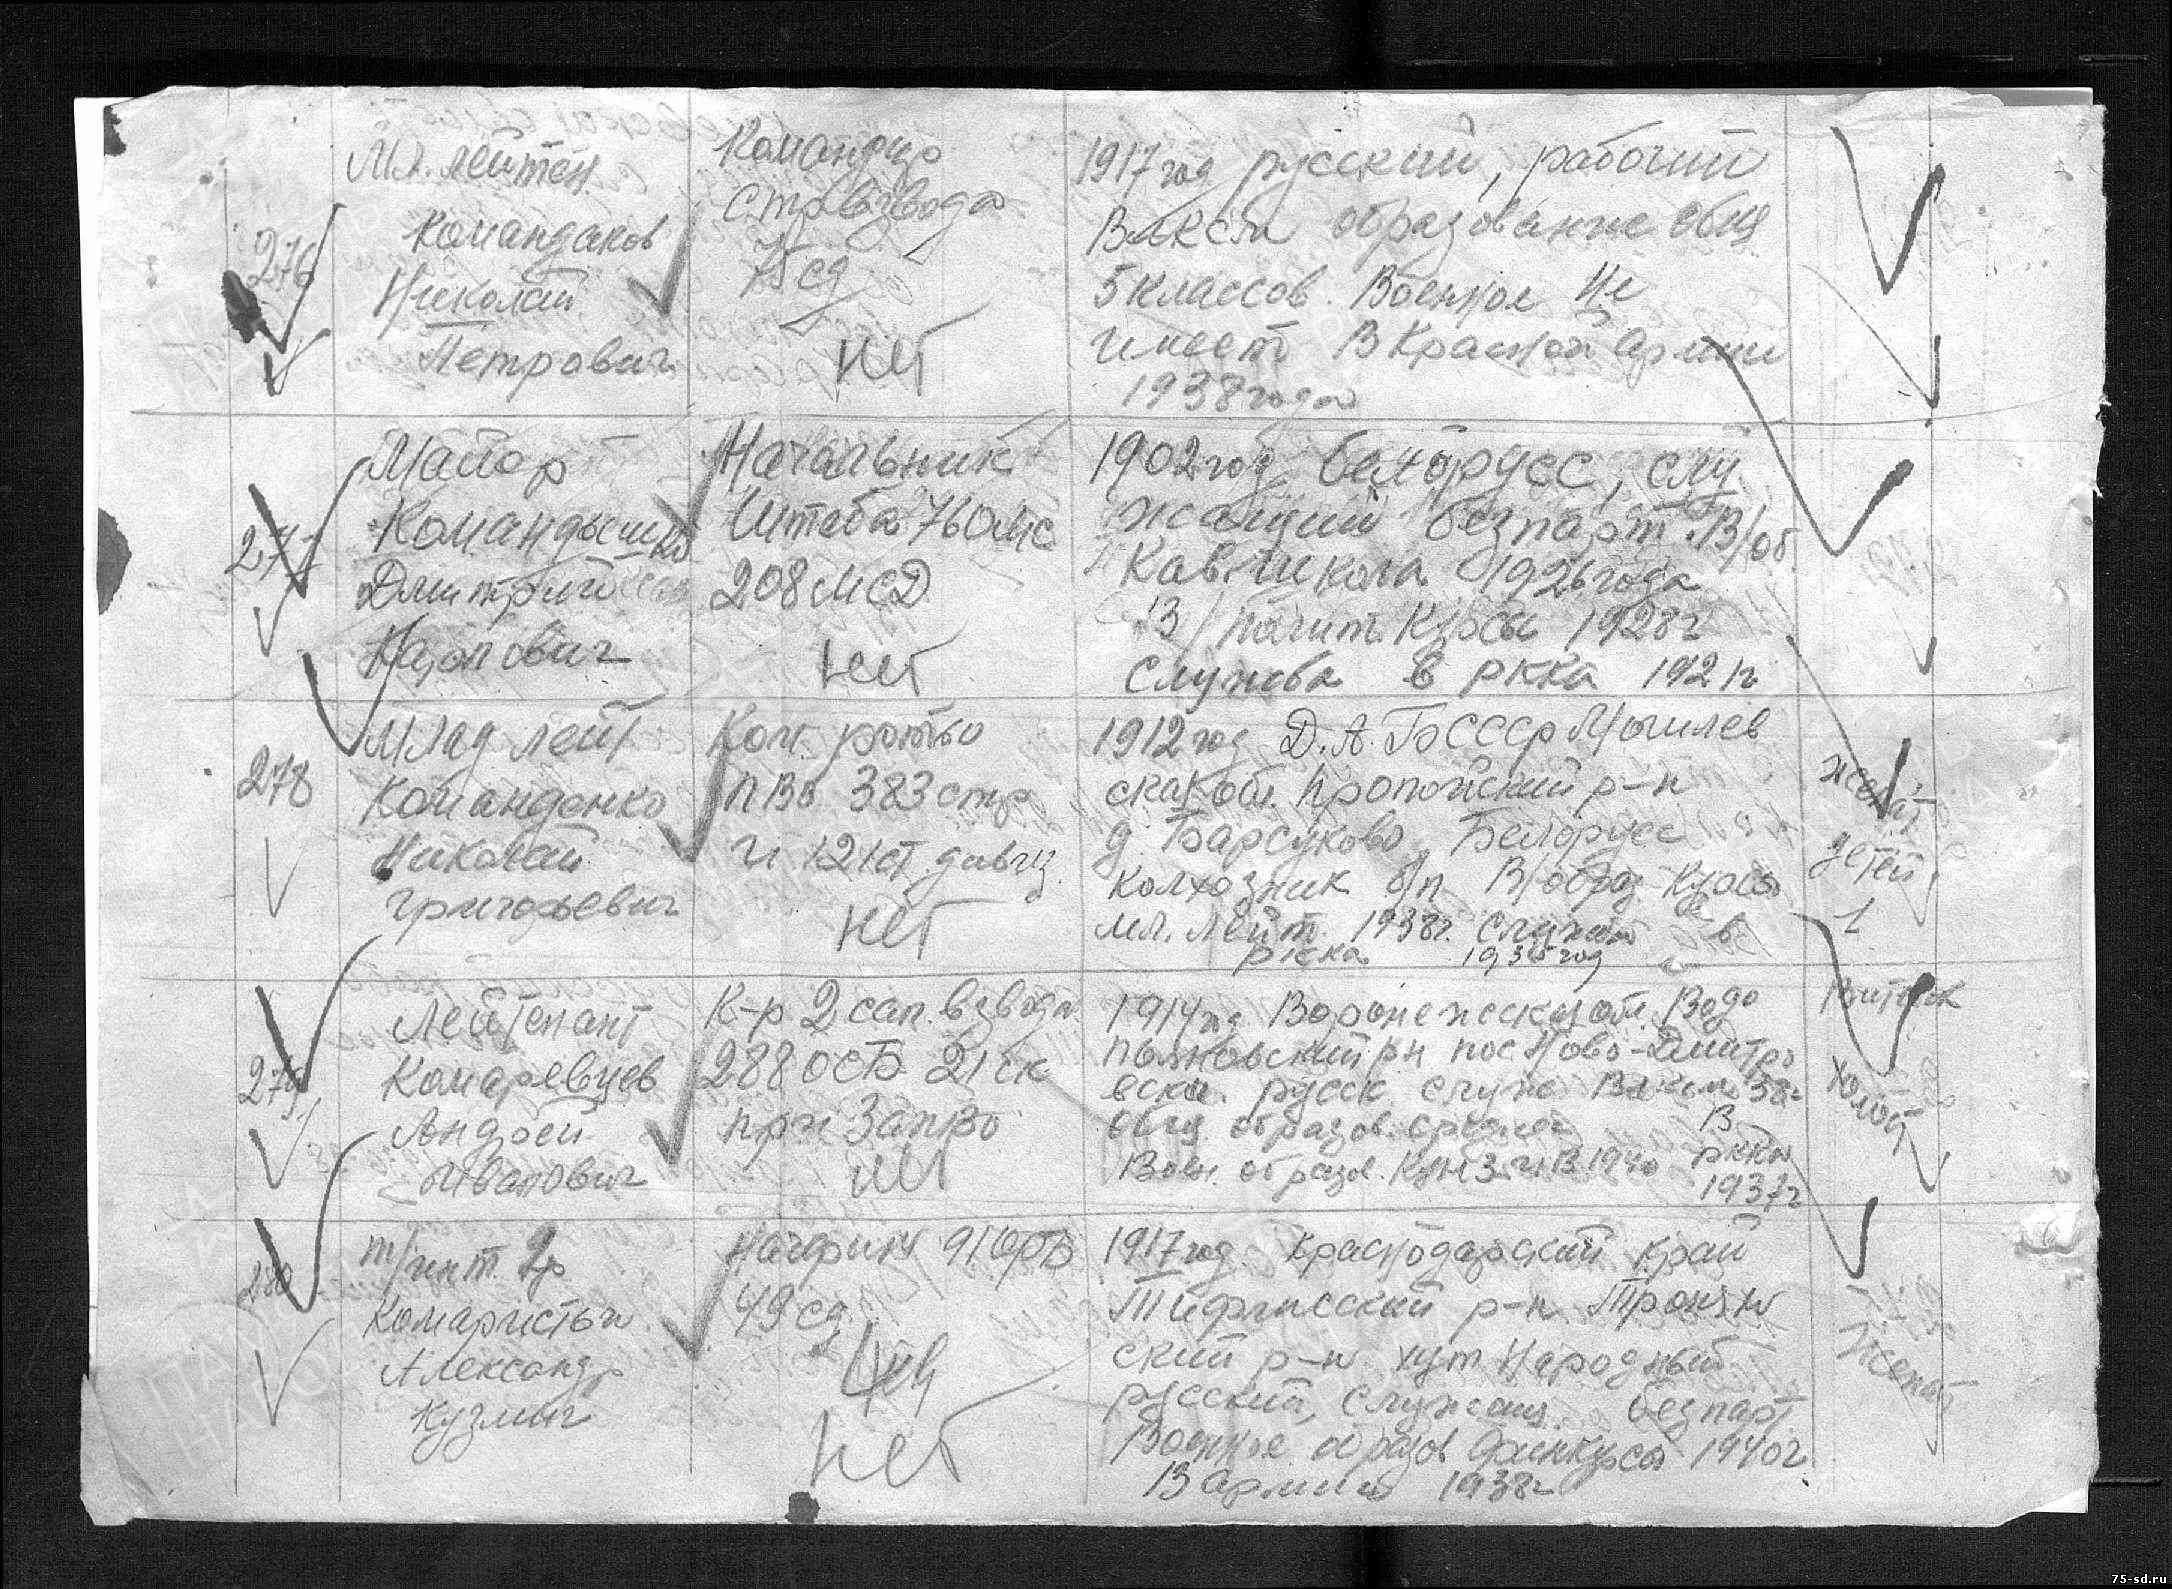 276
Мл. лейтен.
Командаков
Николай
Петрович
Командир
стр взвода
75 сд
нет
1917 год русский, рабочий
ВЛКСМ образование общ
5 классов. Военное Не
имеет В Красной армии
1938 года
277
Майор
Командышко
Дмитрий
Карпович
Начальник
Штаба 760 мс
208 МСД
нет
1902 год белорусс, слу
жащий безпарт В/об.
Кав. школа 1926 года
курсы 1928 г
служба в ркка 1921 г
278
Млад лейт
Команденко
Николай
Григорьевич
Ком. роты
ПВО 383 стр
и 121 ст. дивиз.
нет
1912 год Д.А. БССССР Могилев
ская об. Пропойский р-н
д. Барсуково Белорусс
колхозник б/п В/образ Курсы
мл. лейт. 1938 г. служит в
ркка
женат
детей
1
279
Лейтенант
Комаревцев
Андрей
Иванович
К-р 2 сап. взвода
288 ОСБ 21 ск
при ЗапВо
1914 год Воронежская об. Водо
пьяновский рн пос Ново-Дмитро
вска русск служ 38 г
общ образов. среднее В
Воен. образов. 1940 ркка
1937 г
холост
280
т/инт. 2 р
Комаристый
Александр
Кузмич
Начфин 91 орб
49 сд
нет
1917 год Краснодарский край
Тифлисский р-н
ский р-н хут Народный
русский, служащ. безпарт
Военное образов финкурсы 1940 г
В армии 1938 г
Женат
75-sd.ru